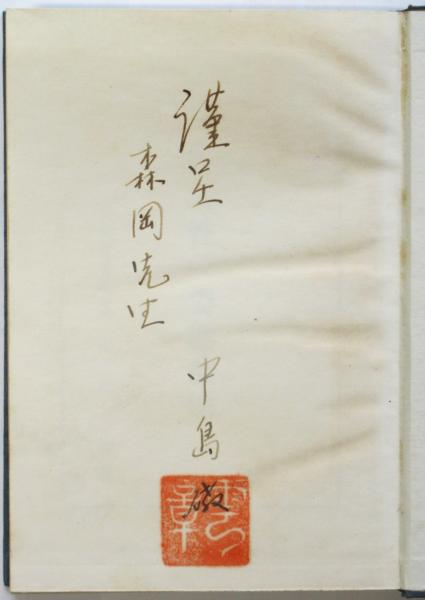 謹呈
森岡先生
中島